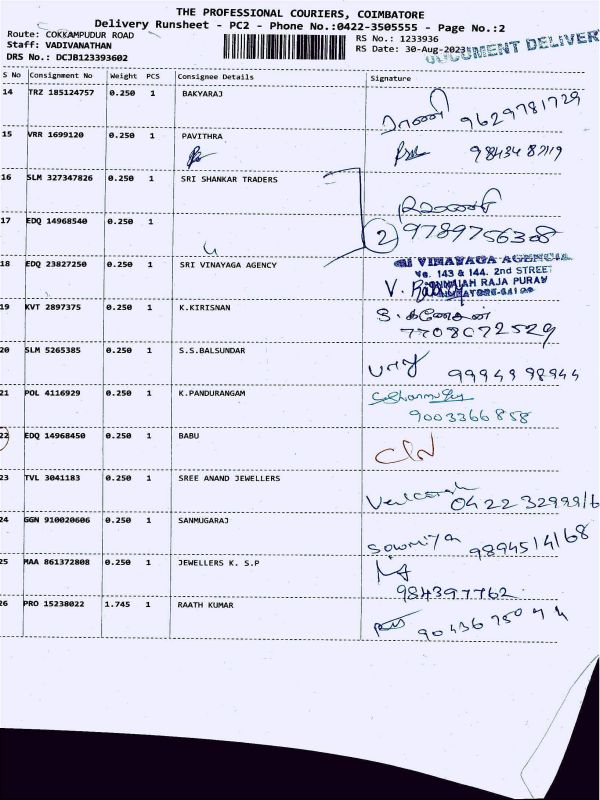 THE PROFESSIONAL COURIERS, COIMBATORE
Delivery Runsheet - PC2 - Phone No.:0422-3505555 - Page No.:2
Route: COKKAMPUDUR ROAD
RS No.: 1233936
Staff: VADIVANATHAN
RS Date: 30-Aug-2023
DOCUMENT DELIVER
DRS No.: DCJB123393602
S No Consignment No Weight PCS Consignee Details Signature
14 TRZ 185124757 0.250 1 BAKYARAJ ராணி 9629781729
15 VRR 1699120 0.250 1 PAVITHRA
16 SLM 327347826 0.250 1 SRI SHANKAR TRADERS
17 EDQ 14968540 0.250 1 2 9789756308
18 EDQ 23827250 0.250 1 SRI VINAYAGA AGENCY
SRI VINAYAGA AGENCIES
No. 143 & 144. 2nd STREET
RAJA PURAM
19 KVT 2897375 0.250 1 K.KIRISNAN S. கணேசன்
7708072529
20 SLM 5265385 0.250 1 S.S.BALSUNDAR பாபு 9994998944
21 POL 4116929 0.250 1 K.PANDURANGAM
9003366858
22 EDQ 14968450 0.250 1 BABU
23 TVL 3041183 0.250 1 SREE ANAND JEWELLERS 0422 32999/6
24 GGN 910020606 0.250 1 SANMUGARAJ Sowmiya 9894514168
25 MAA 861372808 0.250 1 JEWELLERS K. S.P
984397762
26 PRO 15238022 1.745 1 RAATH KUMAR